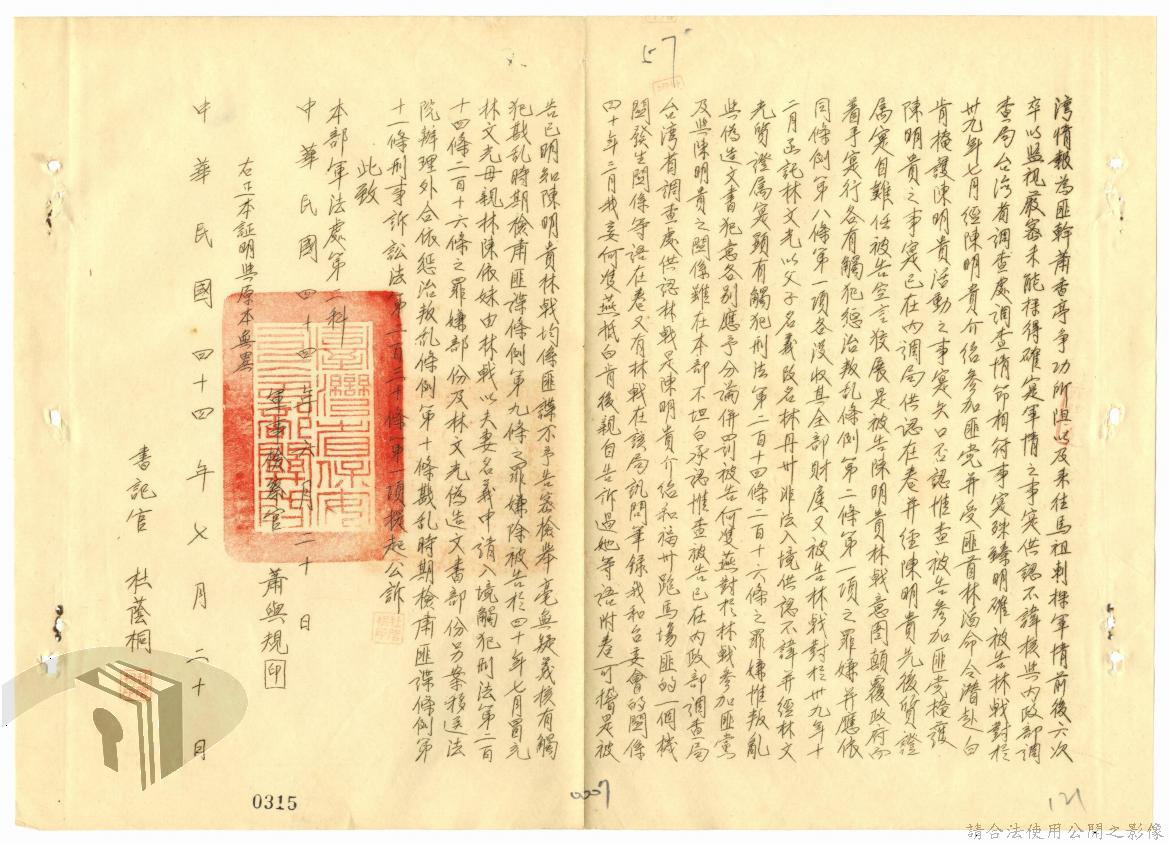 57
湾情報為匪幹蕭香亭爭功所阻以及來往馬祖刺探軍情前後六次
卒以监視嚴密未能探得確寔軍情之事寔供認不諱核與內政部調
查局台湾省調查處調查情節相符事寔殊臻明確被告林戟對於
卅九年七月經陳明貴介紹參加匪党并受匪首林滔命令潛赴白
肯掩護陳明貴活動之事寔矢口否認惟查被告參加匪党掩護
陳明貴之事寔已在內調局供認在卷并經陳明貴先後質證
屬寔自難任被告空言狡展是被告陳明貴林戟意圖顛覆政府而
着手寔行各有觸犯懲治叛乱條例第二條第一項之罪嫌并應依
同條例第八條第一項各没收其全部財產又被告林戟對於卅九年十
二月函託林文光以父子名義改名林丹卅非法入境供認不諱并經林文
光質證屬寔顯有觸犯刑法第二百十四條二百十六條之罪嫌惟叛亂
與偽造文書犯意各別應予分論併罰被告何雙燕對於林戟參加匪黨
及與陳明貴之關係雖在本部不坦白承認惟查被告已在內政部調查局
台湾省調查處供認林戟是陳明貴介紹和福州跑馬場匪的一個機
關發生關係等語在卷又有林戟在該局訊問筆錄我和台委會的關係
四十年二月我妻何雙燕抵白肯後親自告訴過她等語附卷可稽是被
告已明知陳明貴林戟均係匪諜不予告密檢舉毫無疑義核有觸
犯戡乱時期檢肅匪諜條例第九條之罪嫌除被告於四十年七月冒充
林文光母親林陳依妹由林戟以夫妻名義申請入境觸犯刑法第二百
十四條二百十六條之罪嫌部份及林文光偽造文書部份另案移送法
院辦理外合依懲治叛乱條例第十條戡乱時期檢肅匪諜條例第
十一條刑事訴訟法第二百三十條第一項提起公訴
此致
本部軍法處第二科
中華民國四十四年六月二十日
軍事檢察官 蕭與規 印
右正本証明與原本無異
中華民國四十四年七月二十日
書記官 杜蔭桐
0315
0007
121
請合法使用公開之影像